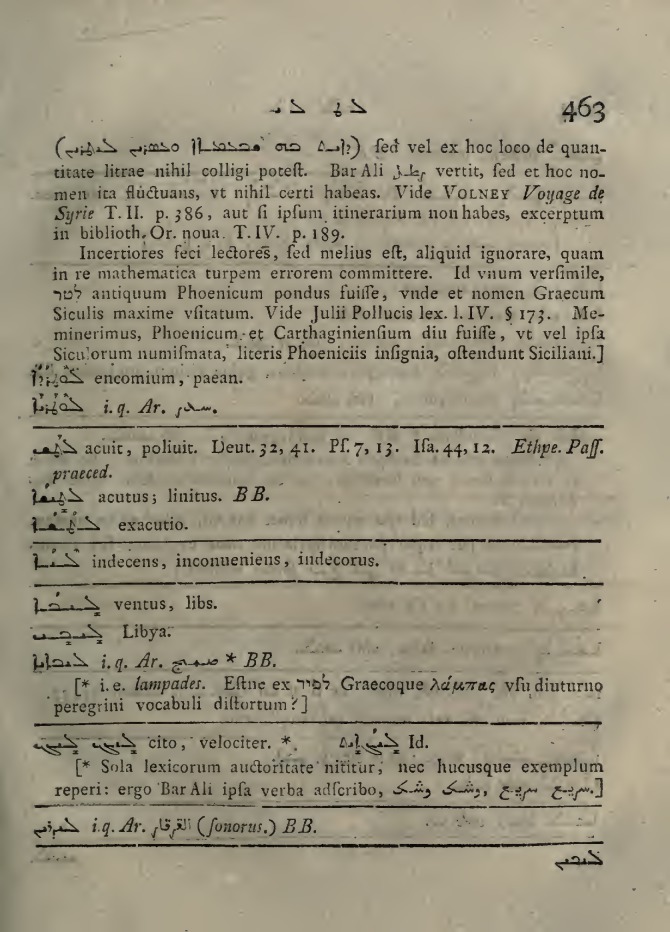 463
sed vel ex hoc loco de quan-
titate litrae nihil colligi poteſt. Bar Ali رطل vertit, ſed et hoc no-
men ita fluctuans, vt nihil certi habeas. Vide VOLNEY Voyage de
Syrie T. II. p. 386, aut ſi ipſum itinerarium non habes, excerptum
in biblioth. Or. noua. T. IV. p. 189.
Incertiores feci lectores, ſed melius eſt, aliquid ignorare, quam
in re mathematica turpem errorem committere. Id vnum veriſimile,
לטר antiquum Phoenicum pondus fuiſſe, vnde et nomen Graecum
Siculis maxime vſitatum. Vide Julii Pollucis lex. l. IV. § 173. Me-
minerimus, Phoenicum et Carthaginienſium diu fuiſſe, vt vel ipſa
Siculorum numiſmata, literis Phoeniciis inſignia, oſtendunt Siciliani.]
encomium, paean.
i. q. Ar.
ܠܛܫ acuit, poliuit. Deut. 32, 41. Pſ. 7, 13. Iſa. 44, 12. Ethpe. Paſſ.
praeced.
ܠܛܝܫܐ acutus; linitus. BB.
ܠܛܫܐ exacutio.
indecens, inconueniens, indecorus.
ventus, libs.
Libya.
i. q. Ar. * BB.
[* i. e. lampades. Eſtne ex לפיד Graecoque λάμπας vſu diuturno
peregrini vocabuli diſtortum?]
cito, velociter. *. Id.
[* Sola lexicorum auctoritate nititur, nec hucusque exemplum
reperi: ergo Bar Ali ipſa verba adſcribo, سريع سريع, وشك وشك.]
i. q. Ar. القرقار (ſonorus.) BB.